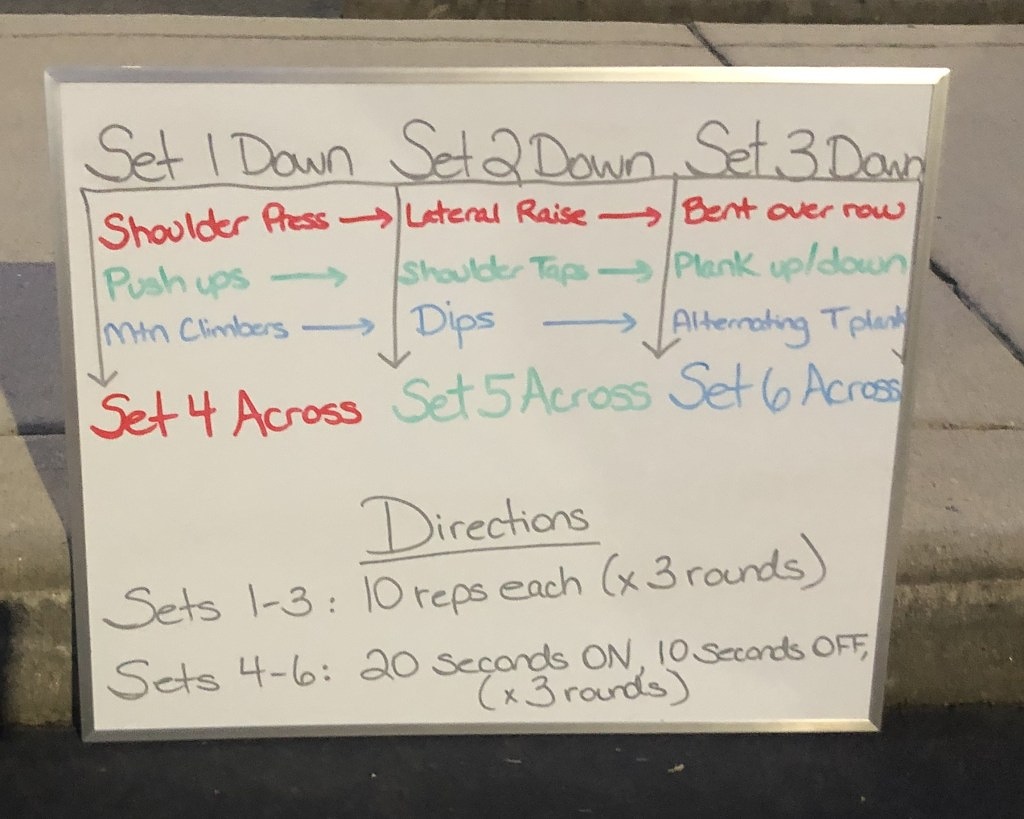 Set 1 Down Set 2 Down Set 3 Down
Shoulder Press → Lateral Raise → Bent over row
Push ups → Shoulder Taps → Plank up/down
Mtn Climbers → Dips → Alternating T plank
Set 4 Across Set 5 Across Set 6 Across
Directions
Sets 1-3: 10 reps each (x 3 rounds)
Sets 4-6: 20 seconds ON, 10 seconds OFF,
(x 3 rounds)